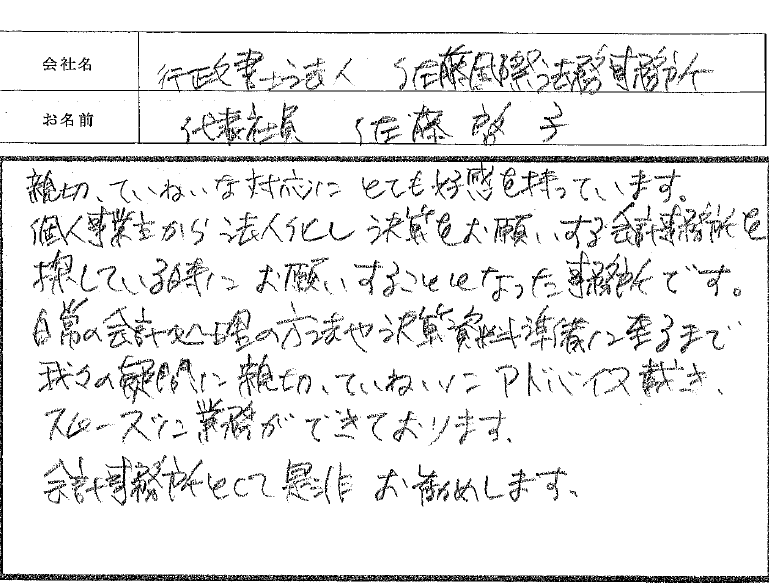 会社名 行政書士法人 佐藤国際法務事務所
お名前 代表社員 佐藤 啓子
親切、ていねいな対応にとても好感を持っています。
個人事業主から法人化し決算をお願いする会計事務所を
探している時にお願いすることになった事務所です。
日常の会計処理の方法や決算資料準備に至るまで
我々の疑問に親切、ていねいにアドバイス戴き、
スムーズに業務ができております。
会計事務所として是非お勧めします。